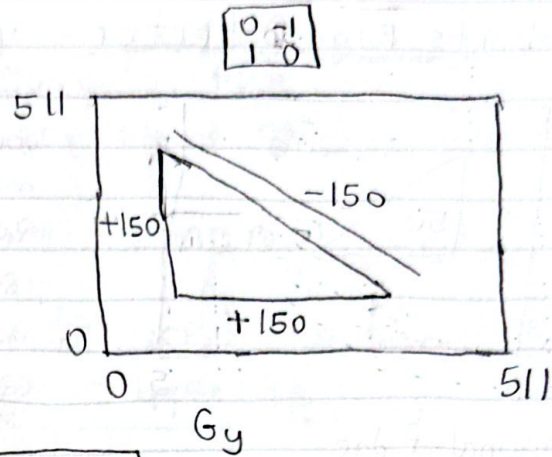 0 -1
1 0
511
-150
+150
+150
0
0 511
Gy